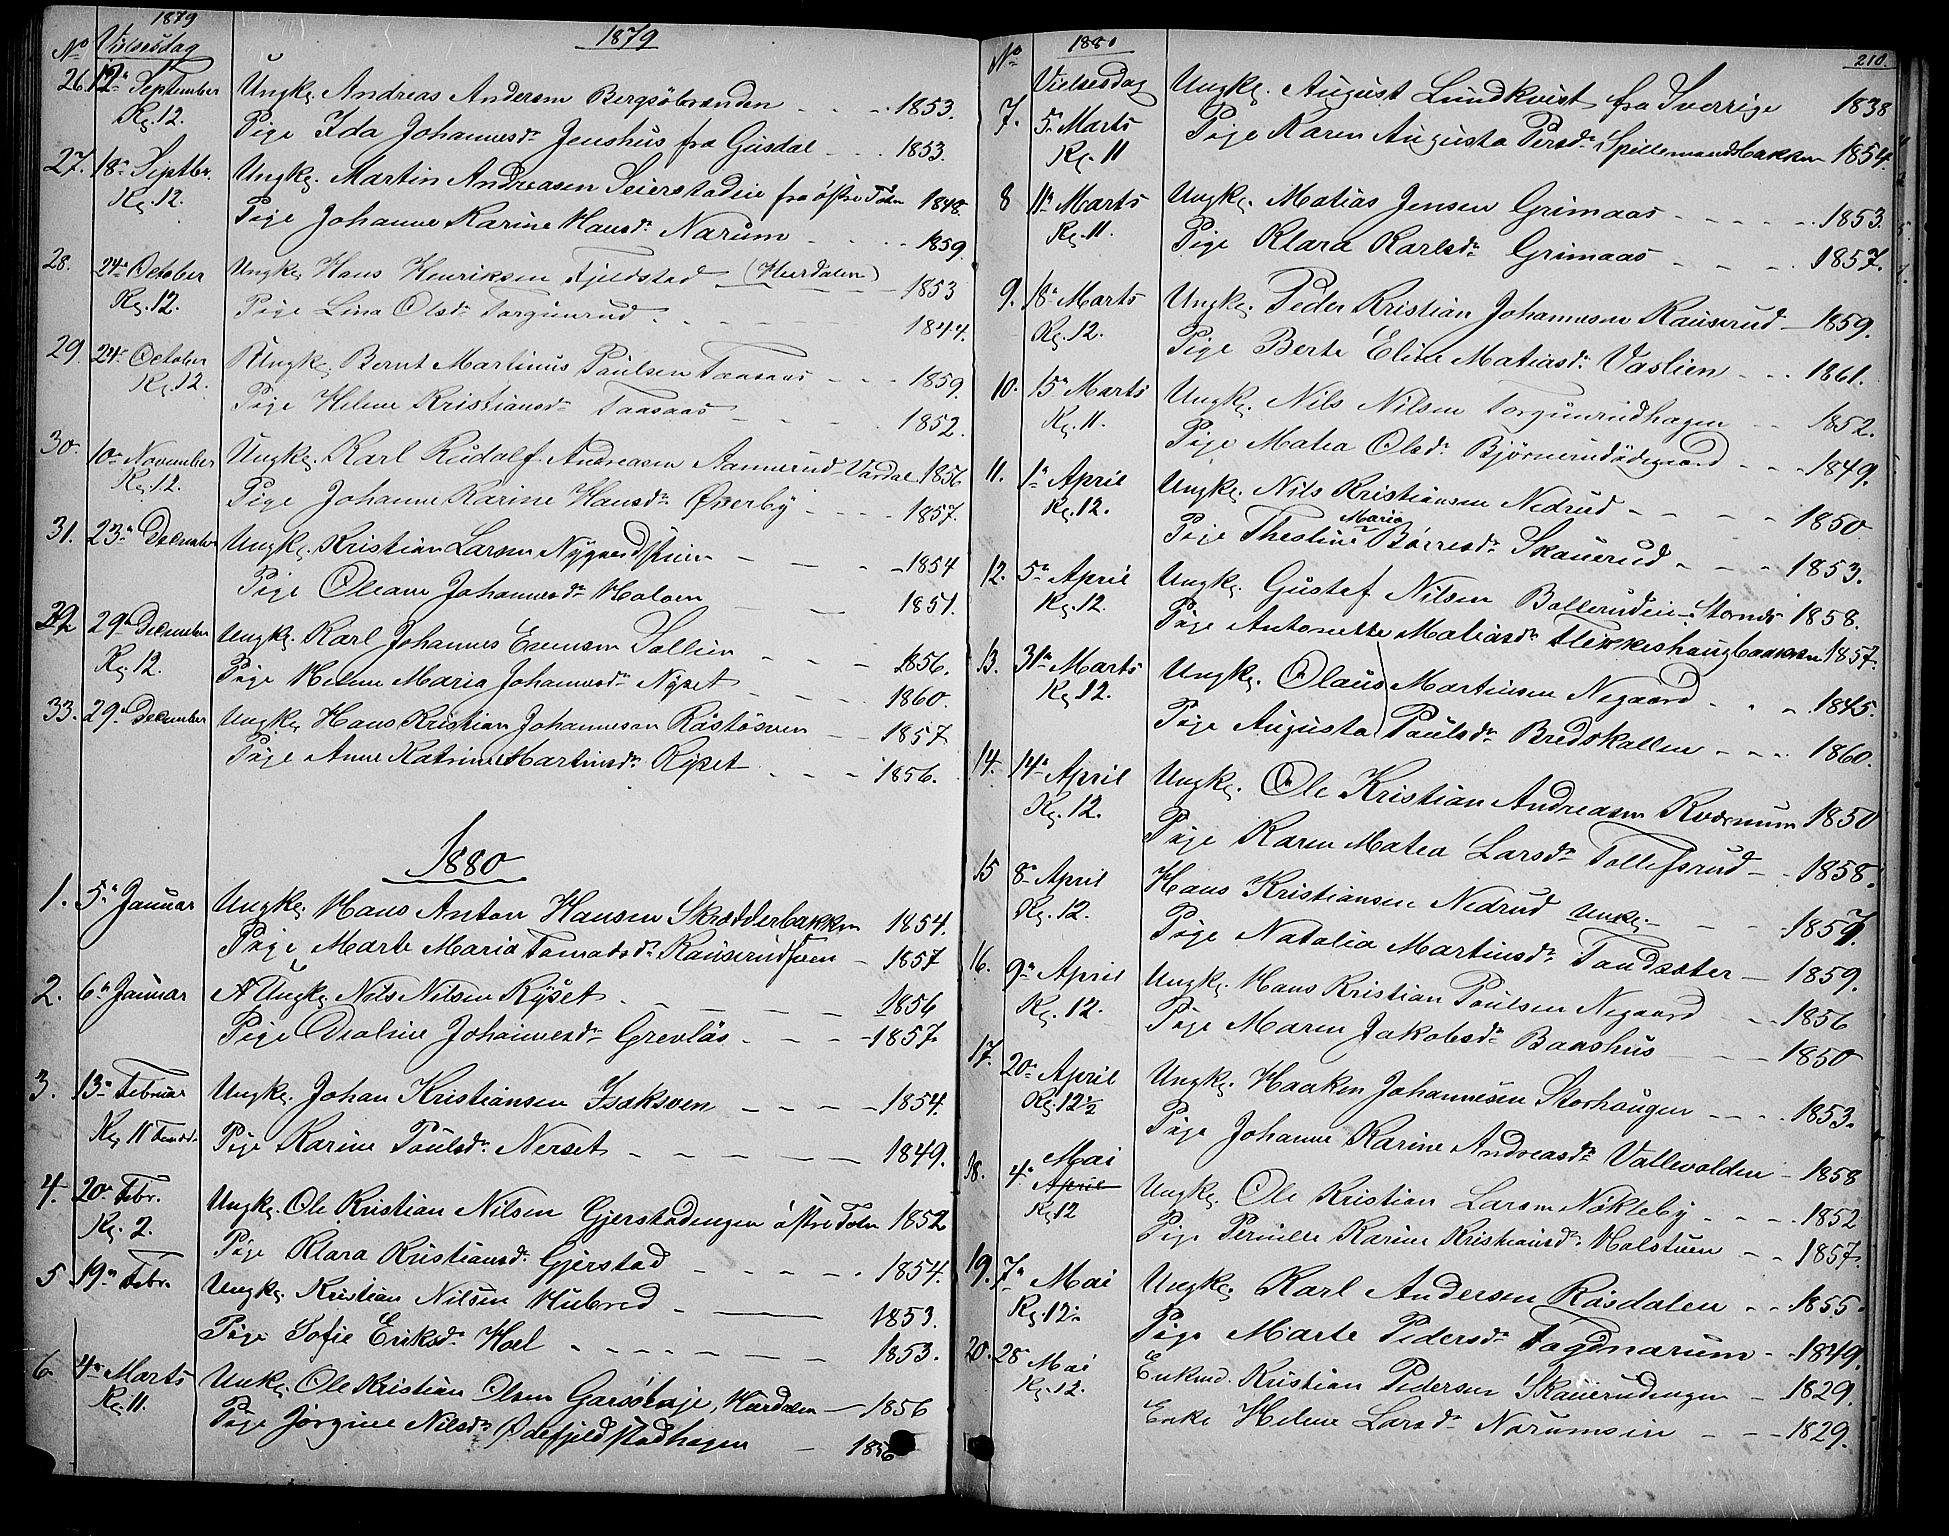 1879
1879
No Vielsesdag
26. 12te September Ungk. Andreas Andersen Bergsöbranden - - - 1853.
Kl. 12. Pige Ida Johannesdr Jenshus fra Gusdal - - - 1853.
27. 18de Septbr. Ungk. Martin Andreasen Seierstadeie fra östre Toten 1848.
Kl. 12. Pige Johanne Karine Hansdr Narum - - - 1859
28. 24de October Ungk. Hans Henriksen Fjeldstad (Hurdalen) - 1853
Kl. 12. Pige Lina Olsdr Torgunrud - - - 1844.
29. 24de October Ungk. Bernt Martinus Paulsen Taasaas - - - 1859.
Kl. 12. Pige Helene Kristiansdr Taasaas - - - 1852.
30. 10de November Ungk. Karl Rudolf Andreasen Aannerud Vardal 1856
Kl. 12. Pige Johanne Karine Hansdr Överby - - - 1857.
31. 23de December Ungk. Kristian Larsen - - - 1854
Pige Oleane Johannesdr - - - 1851.
32 29de December Ungk. Karl Johannes Evensen Sollien - - - 1856.
Kl. 12. Pige Helene Maria Johannesdr Nyset - - - 1860.
33. 29de December Ungk. Hans Kristian Johannesen - - - 1857
Pige Anne Katrine Martinsdr Ryset - - - 1856.
1880
1. 5te Januar Ungk. Hans Anton Hansen Skrædderbakken 1854.
Pige Marte Maria - 1857
2. 6te Januar Ungk. Nils Nilsen Ryset - - - 1856
Pige Oraline Johannesdr Grevlös - - - 1857.
3. 13de Februar Ungk. Johan Kristiansen Isaksven - - - 1854.
Kl. 11 Pige Karine Paulsdr Nerset - - - 1849.
4. 20de Febr. Ungk. Ole Kristian Nilsen Gjerstadengen östre Toten 1852
Kl. 2. Pige Klara Kristiansdr Gjerstad - - - 1854.
5 19de Febr. Ungk. Kristian Nilsen Hubred - - - 1853.
Pige Sofie Eriksdr Hoel - - - 1853.
6 4de Marts Ungk. Ole Kristian Olsen Garsöteje, Hurdalen - 1856
Kl. 11. Pige Jörgine Nilsdr Ödefjeldstadhagen - 1856
210.
No 1880
Vielsesdag
7. 5te Marts Ungk. August Lundkvist fra Sverrige 1838
Kl. 11 Pige Karen Augusta Persdr Spillemandsbakken 1854.
8 11te Marts Ungk. Matias Jensen Grimaas - - - 1853.
Kl. 11. Pige Klara Karlsdr Grimaas - - - 1857.
9. 18de Marts Ungk. Peder Kristian Johannesen Rauserud - 1859.
Kl. 12. Pige Berte Eline Matiasdr Vaslien - - - 1861.
10. 15de Marts Ungk. Nils Nilsen Torgunrudhagen - - 1852.
Kl. 11. Pige Matea Olsdr Björnerudödegaard - - - 1849.
11. 1ste April Ungk. Nils Kristiansen Nedrud - - - 1850
Maria
Kl. 12. Pige Thestine Börresdr Skauerud - - - 1853.
12. 5te April Ungk. Gustaf Nilsen Ballerudeie 1858.
Kl. 12. Pige Antonette Matiasdr 1857.
13. 31te Marts Ungk. Olaus Martinsen Negaard - - - 1845.
Kl. 12. Pige Augusta Paulsdr Bredskallen - - - 1860.
14. 14de April Ungk. Ole Kristian Andreasen Kværnum 1850
Kl. 12. Pige Karen Matea Larsdr Tollefsrud - - 1858.
15 8de April Hans Kristiansen Nedrud Ungk. - - - 1857.
Kl. 12. Pige Natalia Martinsdr Tandsæter - 1859.
16. 9de April Ungk. Hans Kristian Paulsen Negaard - - 1856
Kl. 12. Pige Maren Jakobsdr Baashus - - 1850
17. 20de April Ungk. Haaken Johannesen Storhaugen - - - 1853.
Kl. 12½ Pige Johanne Karine Andreasdr Vallevolden - 1858
Mai
18. 4de April Ungk. Ole Kristian Larsen Nökleby - - - 1852
Kl. 12 Pige Pernille Karine Kristiansdr Halstuen - - 1857.
19. 7de Mai Ungk. Karl Andersen Rosdalen - - 1855.
Kl. 12. Pige Marte Pedersdr Fagdnarum - 1849.
20. 28 Mai Enkmd. Kristian Pedersen Skauerudengen - 1829.
Kl. 12. Enke Helene Larsdr Narumseie - - - 1829.